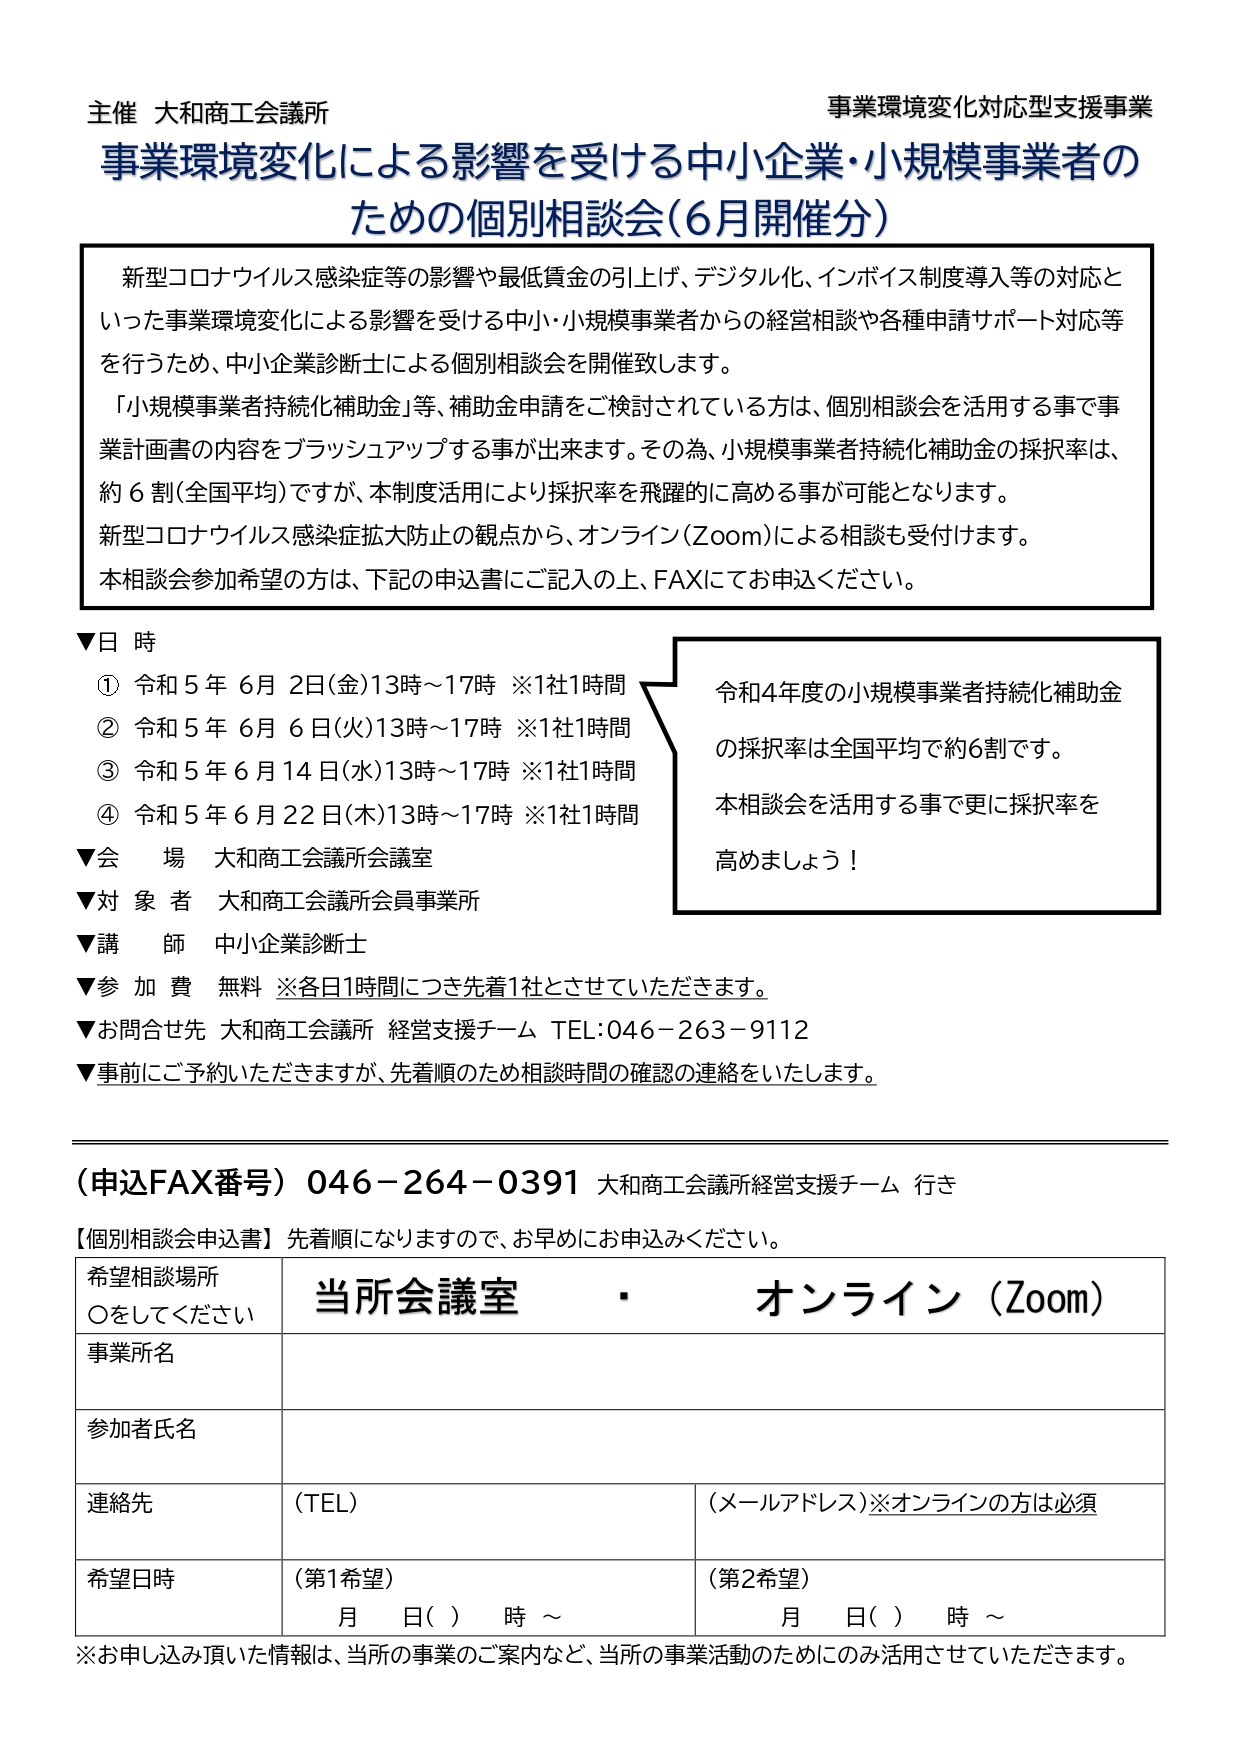 主催 大和商工会議所
事業環境変化対応型支援事業
事業環境変化による影響を受ける中小企業・小規模事業者の
ための個別相談会（6月開催分）
新型コロナウイルス感染症等の影響や最低賃金の引上げ、デジタル化、インボイス制度導入等の対応と
いった事業環境変化による影響を受ける中小・小規模事業者からの経営相談や各種申請サポート対応等
を行うため、中小企業診断士による個別相談会を開催致します。
「小規模事業者持続化補助金」等、補助金申請をご検討されている方は、個別相談会を活用する事で事
業計画書の内容をブラッシュアップする事が出来ます。その為、小規模事業者持続化補助金の採択率は、
約 6 割（全国平均）ですが、本制度活用により採択率を飛躍的に高める事が可能となります。
新型コロナウイルス感染症拡大防止の観点から、オンライン（Zoom）による相談も受付けます。
本相談会参加希望の方は、下記の申込書にご記入の上、FAXにてお申込ください。
▼日 時
① 令和 5 年 6月 2日(金)13時～17時 ※1社1時間
② 令和 5 年 6月 6 日(火)13時～17時 ※1社1時間
③ 令和 5 年 6 月 14 日(水)13時～17時 ※1社1時間
④ 令和 5 年 6 月 22 日(木)13時～17時 ※1社1時間
令和4年度の小規模事業者持続化補助金
の採択率は全国平均で約6割です。
本相談会を活用する事で更に採択率を
高めましょう！
▼会 場 大和商工会議所会議室
▼対 象 者 大和商工会議所会員事業所
▼講 師 中小企業診断士
▼参 加 費 無料 ※各日1時間につき先着1社とさせていただきます。
▼お問合せ先 大和商工会議所 経営支援チーム TEL：046－263－9112
▼事前にご予約いただきますが、先着順のため相談時間の確認の連絡をいたします。
（申込FAX番号） 046－264－0391 大和商工会議所経営支援チーム 行き
【個別相談会申込書】 先着順になりますので、お早めにお申込みください。
希望相談場所
○をしてください
当所会議室 ・ オンライン（Zoom）
事業所名
参加者氏名
連絡先 （TEL） （メールアドレス）※オンラインの方は必須
希望日時 （第1希望） （第2希望）
月 日( ) 時 ～ 月 日( ) 時 ～
※お申し込み頂いた情報は、当所の事業のご案内など、当所の事業活動のためにのみ活用させていただきます。